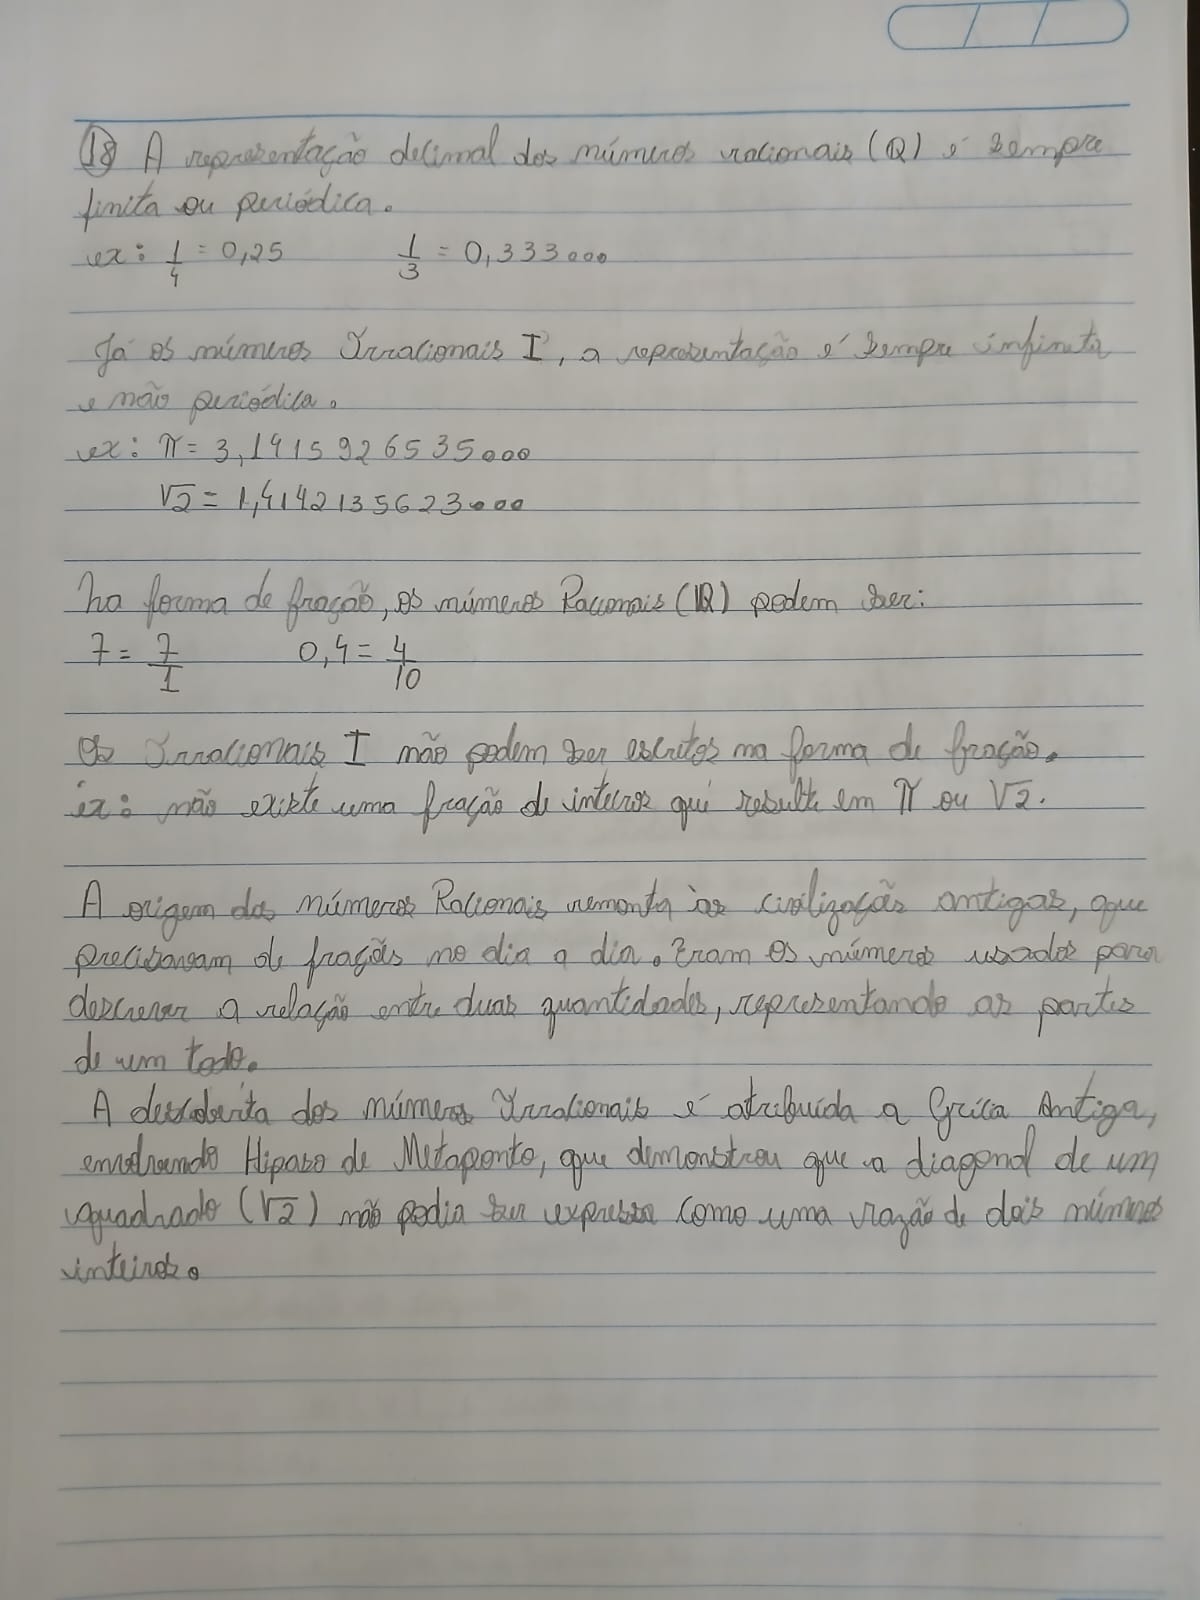 18 A representação decimal dos números racionais (Q) é sempre
finita ou periódica.
ex: 1/4 = 0,25 1/3 = 0,333...
Já os números Irracionais I, a representação é sempre infinita
e não periódica.
ex: π = 3,1415926535...
√2 = 1,4142135623...
Na forma de fração, os números Racionais (Q) podem ser:
7 = 7/1 0,4 = 4/10
Os Irracionais I não podem ser escritos na forma de fração.
ex: não existe uma fração de inteiros que resulte em π ou √2.
A origem dos números Racionais remonta às civilizações antigas, que
precisavam de frações no dia a dia. Eram os números usados para
descrever a relação entre duas quantidades, representando as partes
de um todo.
A descoberta dos números Irracionais é atribuída a Grécia Antiga,
envolvendo Hipaso de Metaponto, que demonstrou que a diagonal de um
quadrado (√2) não podia ser expressa como uma razão de dois números
inteiros.